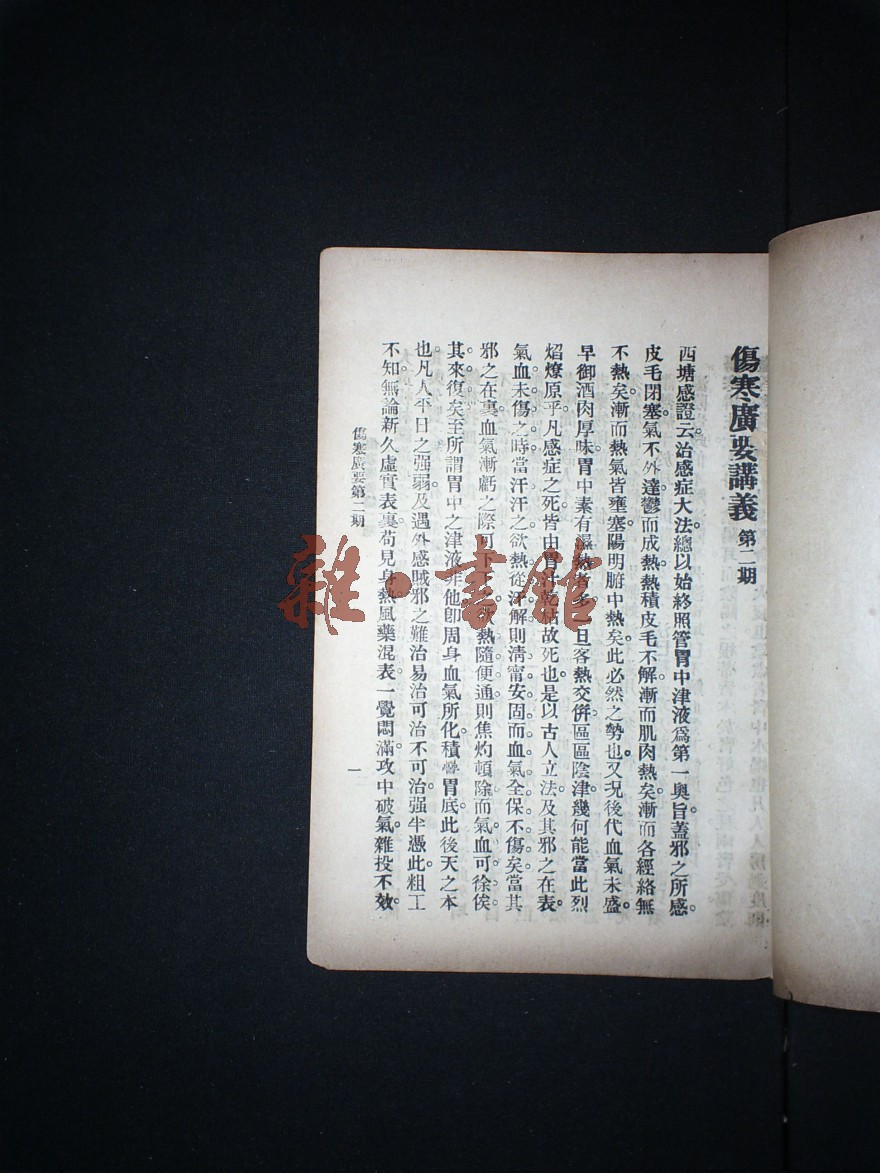 傷寒廣要講義 第二期
西塘感證云。治感症大法。總以始終照管胃中津液爲第一奧旨。蓋邪之所感。
皮毛閉塞。氣不外達。鬱而成熱。熱積皮毛不解。漸而肌肉熱矣。漸而各經絡無
不熱矣。漸而熱氣皆壅塞陽明腑中熱矣。此必然之勢也。又况後代血氣未盛
早御酒肉厚味。胃中素有濕熱者多。一旦客熱交併。區區陰津。幾何能當此烈
焰燎原乎。凡感症之死。皆由胃汁乾枯故死也。是以古人立法。及其邪之在表。
氣血未傷之時。當汗汗之。欲熱從汗解。則淸甯安固。而血氣全保不傷矣。當其
邪之在裏。血氣漸虧之際。可下下之。欲熱隨便通。則焦灼頓除。而氣血可徐俟
其來復矣。至所謂胃中之津液非他。卽周身血氣所化。積疊胃底。此後天之本
也。凡人平日之强弱。及遇外感賊邪之難治易治。可治不可治。强半憑此。粗工
不知。無論新久虛實表裏。苟見身熱。風藥混表。一覺悶滿。攻中破氣。雜投不效。
傷寒廣要第二期
一
雜·書館